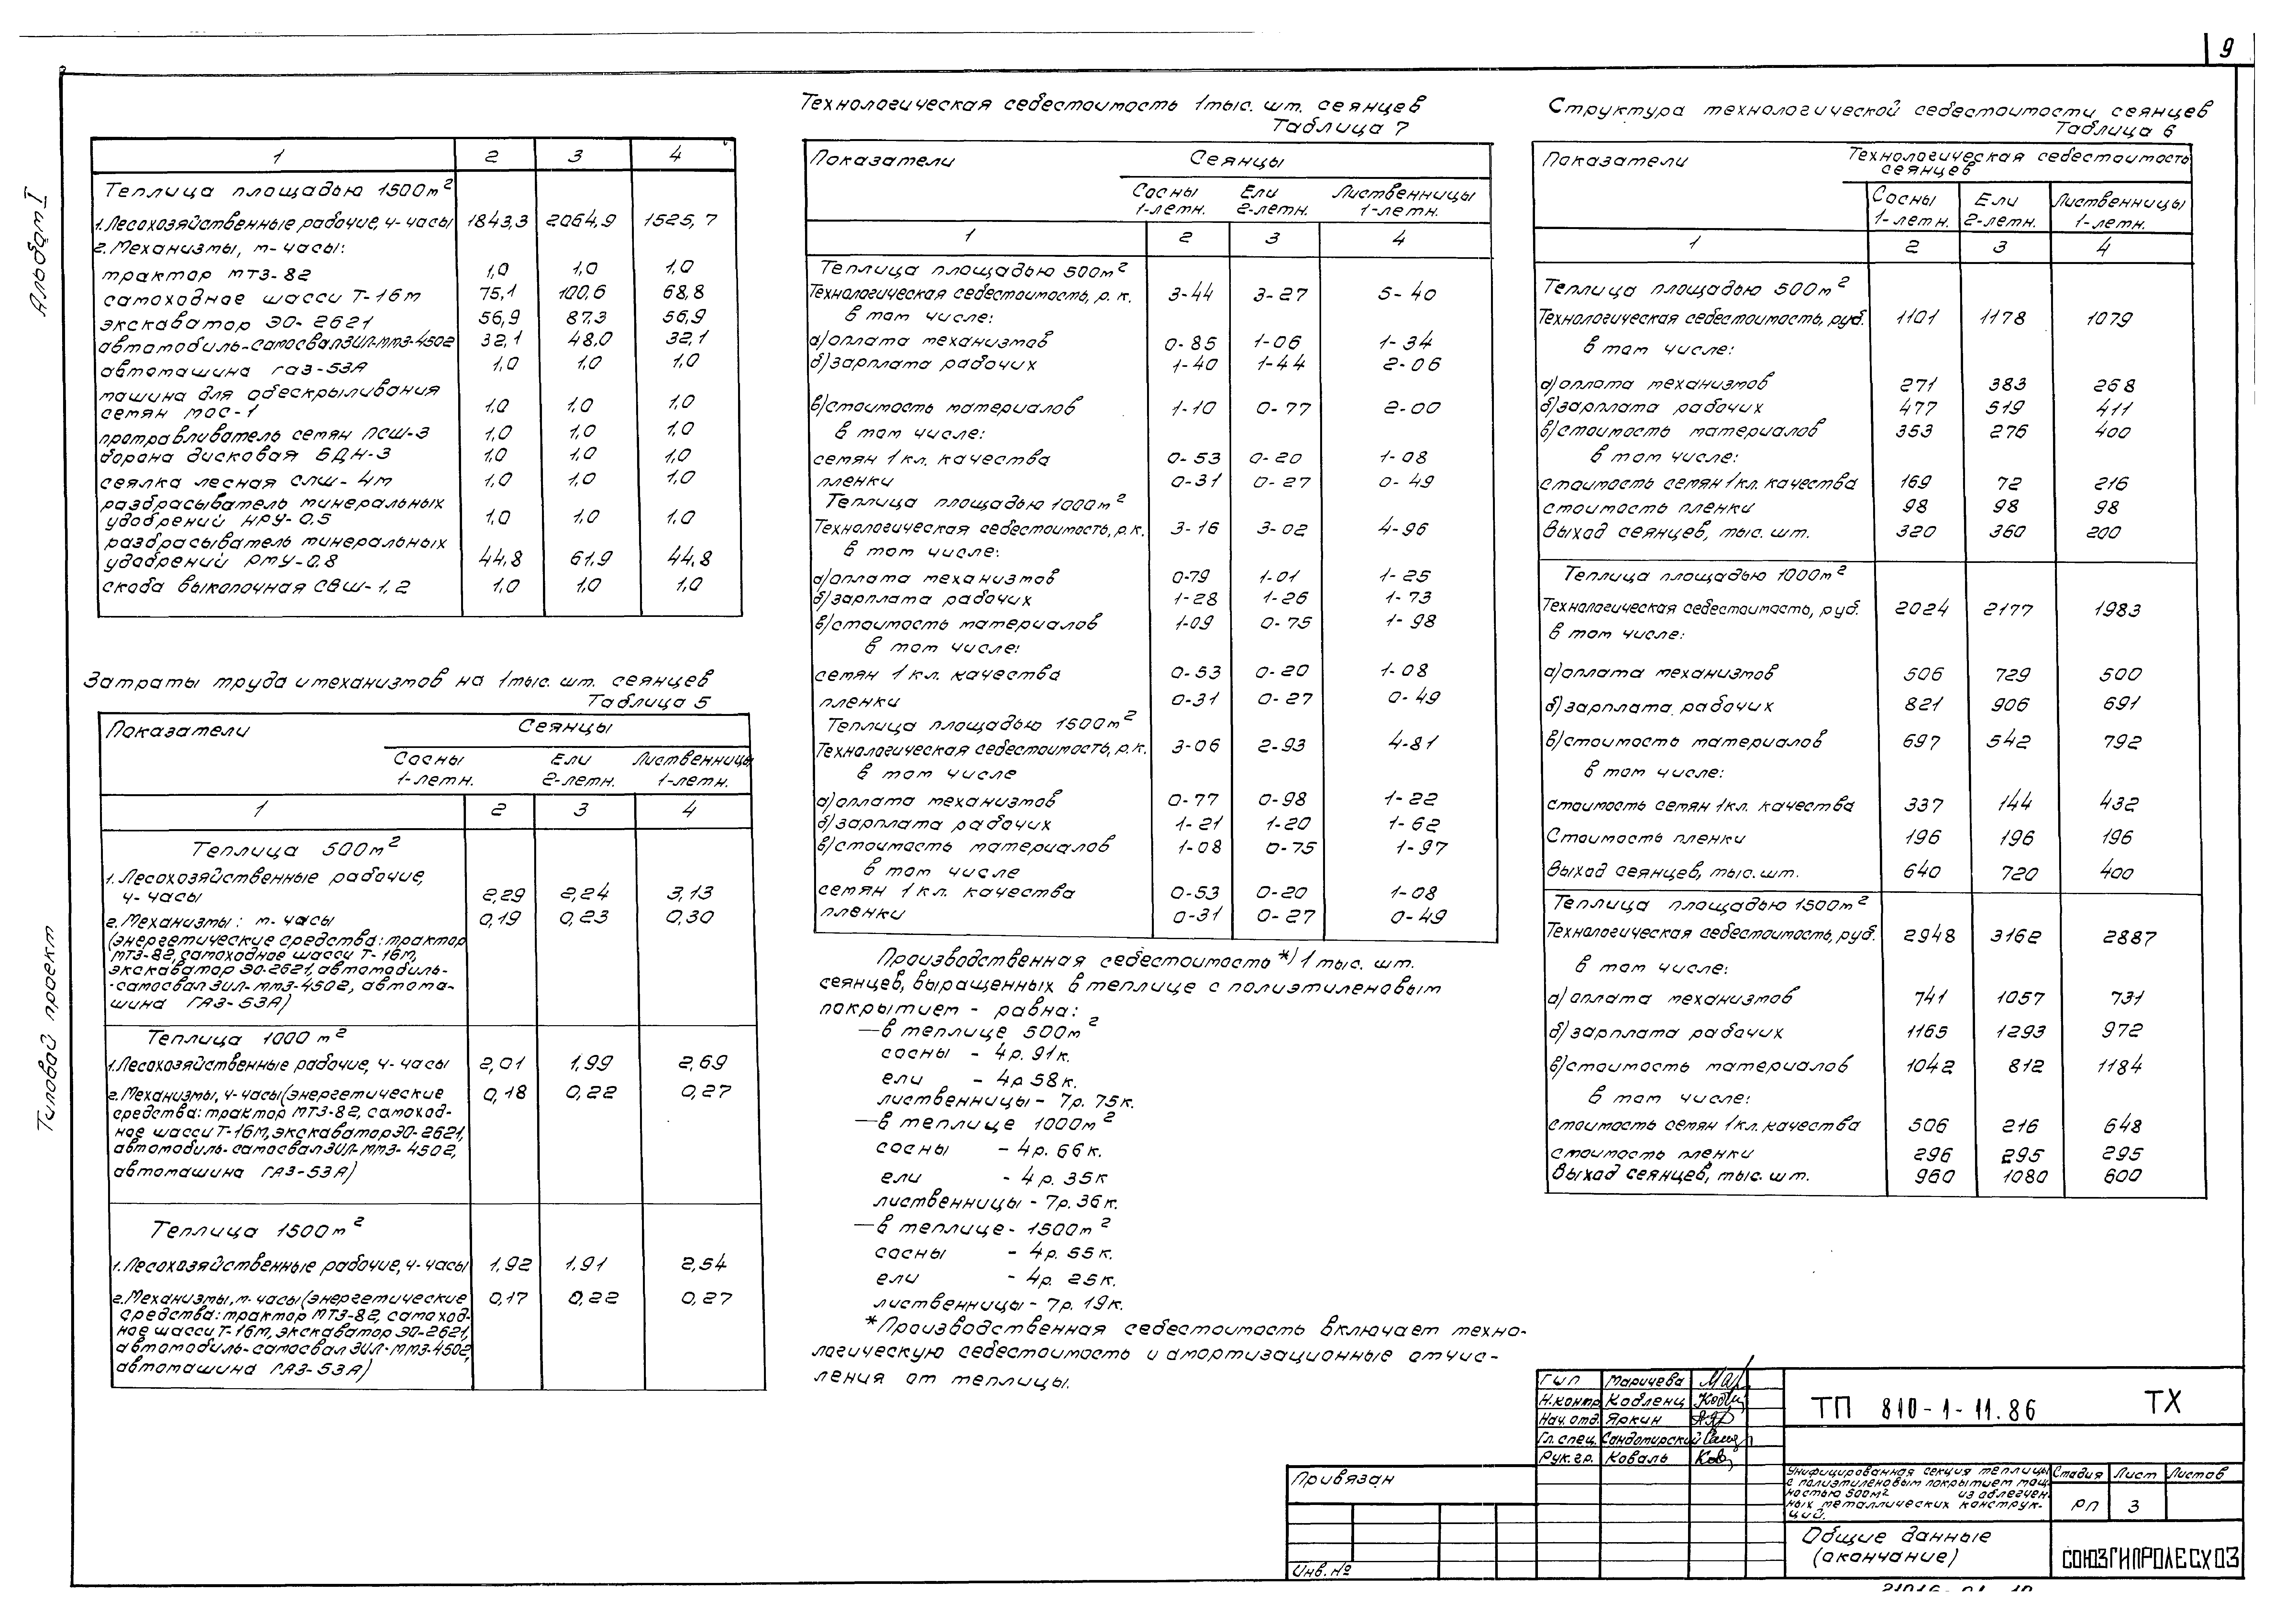 9
Альбом I
Типовой проект
1 2 3 4
Теплица площадью 1500м²
1. Лесохозяйственные рабочие, ч-часы 1843,3 2064,9 1525,7
2. Механизмы, м-часы:
трактор МТЗ-82 1,0 1,0 1,0
самоходное шасси Т-16М 75,1 100,6 68,8
экскаватор ЭО-2621 56,9 87,3 56,9
автомобиль-самосвал ЗИЛ-ММЗ-4502 32,1 48,0 32,1
автомашина ГАЗ-53А 1,0 1,0 1,0
машина для обескрыливания
семян МОС-1 1,0 1,0 1,0
протравливатель семян ПСШ-3 1,0 1,0 1,0
борона дисковая БДН-3 1,0 1,0 1,0
сеялка лесная СЛШ-4М 1,0 1,0 1,0
разбрасыватель минеральных
удобрений НРУ-0,5 1,0 1,0 1,0
разбрасыватель минеральных
удобрений РМУ-0,8 44,8 61,9 44,8
скоба выкопочная СВШ-1,2 1,0 1,0 1,0
Затраты труда и механизмов на 1 тыс. шт. сеянцев
Таблица 5
Показатели Сеянцы
Сосны Ели Лиственницы
1-летн. 2-летн. 1-летн.
1 2 3 4
Теплица 500м²
1. Лесохозяйственные рабочие,
ч-часы 2,29 2,24 3,13
2. Механизмы: м-часы 0,19 0,23 0,30
(энергетические средства: трактор
МТЗ-82, самоходное шасси Т-16М,
экскаватор ЭО-2621, автомобиль-
-самосвал ЗИЛ-ММЗ-4502, автома-
шина ГАЗ-53А)
Теплица 1000м²
1. Лесохозяйственные рабочие, ч-часы 2,01 1,99 2,69
2. Механизмы, ч-часы (энергетические 0,18 0,22 0,27
средства: трактор МТЗ-82, самоход-
ное шасси Т-16М, экскаватор ЭО-2621,
автомобиль-самосвал ЗИЛ-ММЗ-4502,
автомашина ГАЗ-53А)
Теплица 1500м²
1. Лесохозяйственные рабочие, ч-часы 1,92 1,91 2,54
2. Механизмы, м-часы (энергетические 0,17 0,22 0,27
средства: трактор МТЗ-82, самоход-
ное шасси Т-16М, экскаватор ЭО-2621,
автомобиль-самосвал ЗИЛ-ММЗ-4502,
автомашина ГАЗ-53А)
Технологическая себестоимость 1 тыс. шт. сеянцев
Таблица 7
Показатели Сеянцы
Сосны Ели Лиственницы
1-летн. 2-летн. 1-летн.
1 2 3 4
Теплица площадью 500м²
Технологическая себестоимость, р.к. 3-44 3-27 5-40
в том числе:
а) оплата механизмов 0-85 1-06 1-34
б) зарплата рабочих 1-40 1-44 2-06
в) стоимость материалов 1-10 0-77 2-00
в том числе:
семян 1 кл. качества 0-53 0-20 1-08
пленки 0-31 0-27 0-49
Теплица площадью 1000м²
Технологическая себестоимость, р.к. 3-16 3-02 4-96
в том числе:
а) оплата механизмов 0-79 1-01 1-25
б) зарплата рабочих 1-28 1-26 1-73
в) стоимость материалов 1-09 0-75 1-98
в том числе:
семян 1 кл. качества 0-53 0-20 1-08
пленки 0-31 0-27 0-49
Теплица площадью 1500м²
Технологическая себестоимость, р.к. 3-06 2-93 4-81
в том числе
а) оплата механизмов 0-77 0-98 1-22
б) зарплата рабочих 1-21 1-20 1-62
в) стоимость материалов 1-08 0-75 1-97
в том числе
семян 1 кл. качества 0-53 0-20 1-08
пленки 0-31 0-27 0-49
Производственная себестоимость *) 1 тыс. шт.
сеянцев, выращенных в теплице с полиэтиленовым
покрытием - равна:
— в теплице 500м²
сосны - 4р. 91к.
ели - 4р 58к.
лиственницы - 7р. 75к.
— в теплице 1000м²
сосны - 4р. 66к.
ели - 4р. 35к
лиственницы - 7р. 36к.
— в теплице - 1500м²
сосны - 4р. 55к.
ели - 4р. 25к.
лиственницы - 7р. 19к.
* Производственная себестоимость включает техно-
логическую себестоимость и амортизационные отчис-
ления от теплицы.
Структура технологической себестоимости сеянцев
Таблица 6
Показатели Технологическая себестоимость
сеянцев
Сосны Ели Лиственницы
1-летн. 2-летн. 1-летн.
1 2 3 4
Теплица площадью 500м²
Технологическая себестоимость, руб. 1101 1178 1079
в том числе:
а) оплата механизмов 271 383 268
б) зарплата рабочих 477 519 411
в) стоимость материалов 353 276 400
в том числе:
стоимость семян 1 кл. качества 169 72 216
стоимость пленки 98 98 98
Выход сеянцев, тыс. шт. 320 360 200
Теплица площадью 1000м²
Технологическая себестоимость, руб. 2024 2177 1983
в том числе:
а) оплата механизмов 506 729 500
б) зарплата рабочих 821 906 691
в) стоимость материалов 697 542 792
в том числе:
стоимость семян 1 кл. качества 337 144 432
Стоимость пленки 196 196 196
Выход сеянцев, тыс. шт. 640 720 400
Теплица площадью 1500м²
Технологическая себестоимость, руб. 2948 3162 2887
в том числе:
а) оплата механизмов 741 1057 731
б) зарплата рабочих 1165 1293 972
в) стоимость материалов 1042 812 1184
в том числе:
стоимость семян 1 кл. качества 506 216 648
стоимость пленки 296 295 295
Выход сеянцев, тыс. шт. 960 1080 600
ГИП Маричева
Н.контр Кобленц
Нач. отд. Яркин
Гл. спец. Сандомирский
Рук. гр. Коваль
ТП 810-1-11.86 ТХ
Привязан
Инв. №
Унифицированная секция теплицы
с полиэтиленовым покрытием пло-
ностью 500м² из облегчен-
ных металлических конструк-
ций.
Стадия Лист Листов
РП 3
Общие данные
(окончание)
СОЮЗГИПРОЛЕСХОЗ